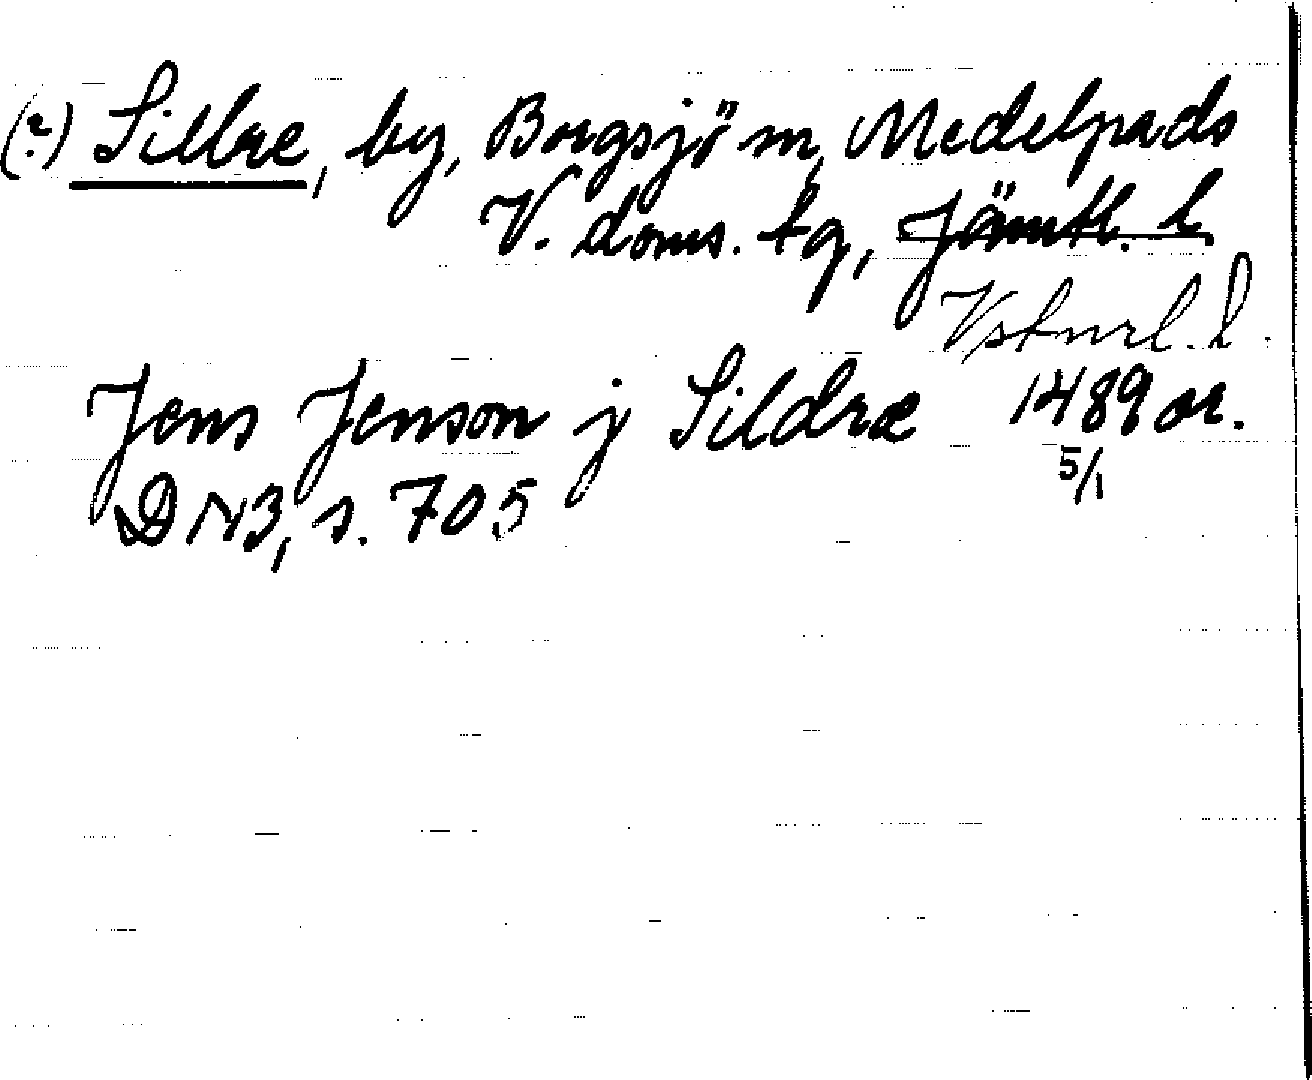 (?) Sillre, by, Borgsjö sn, Medelpads
V. doms. tg, Jämtl. l.
Vstnrl. l.
Jens Jenson j Sildræ 1489 or.
5/1
DN3, s. 705